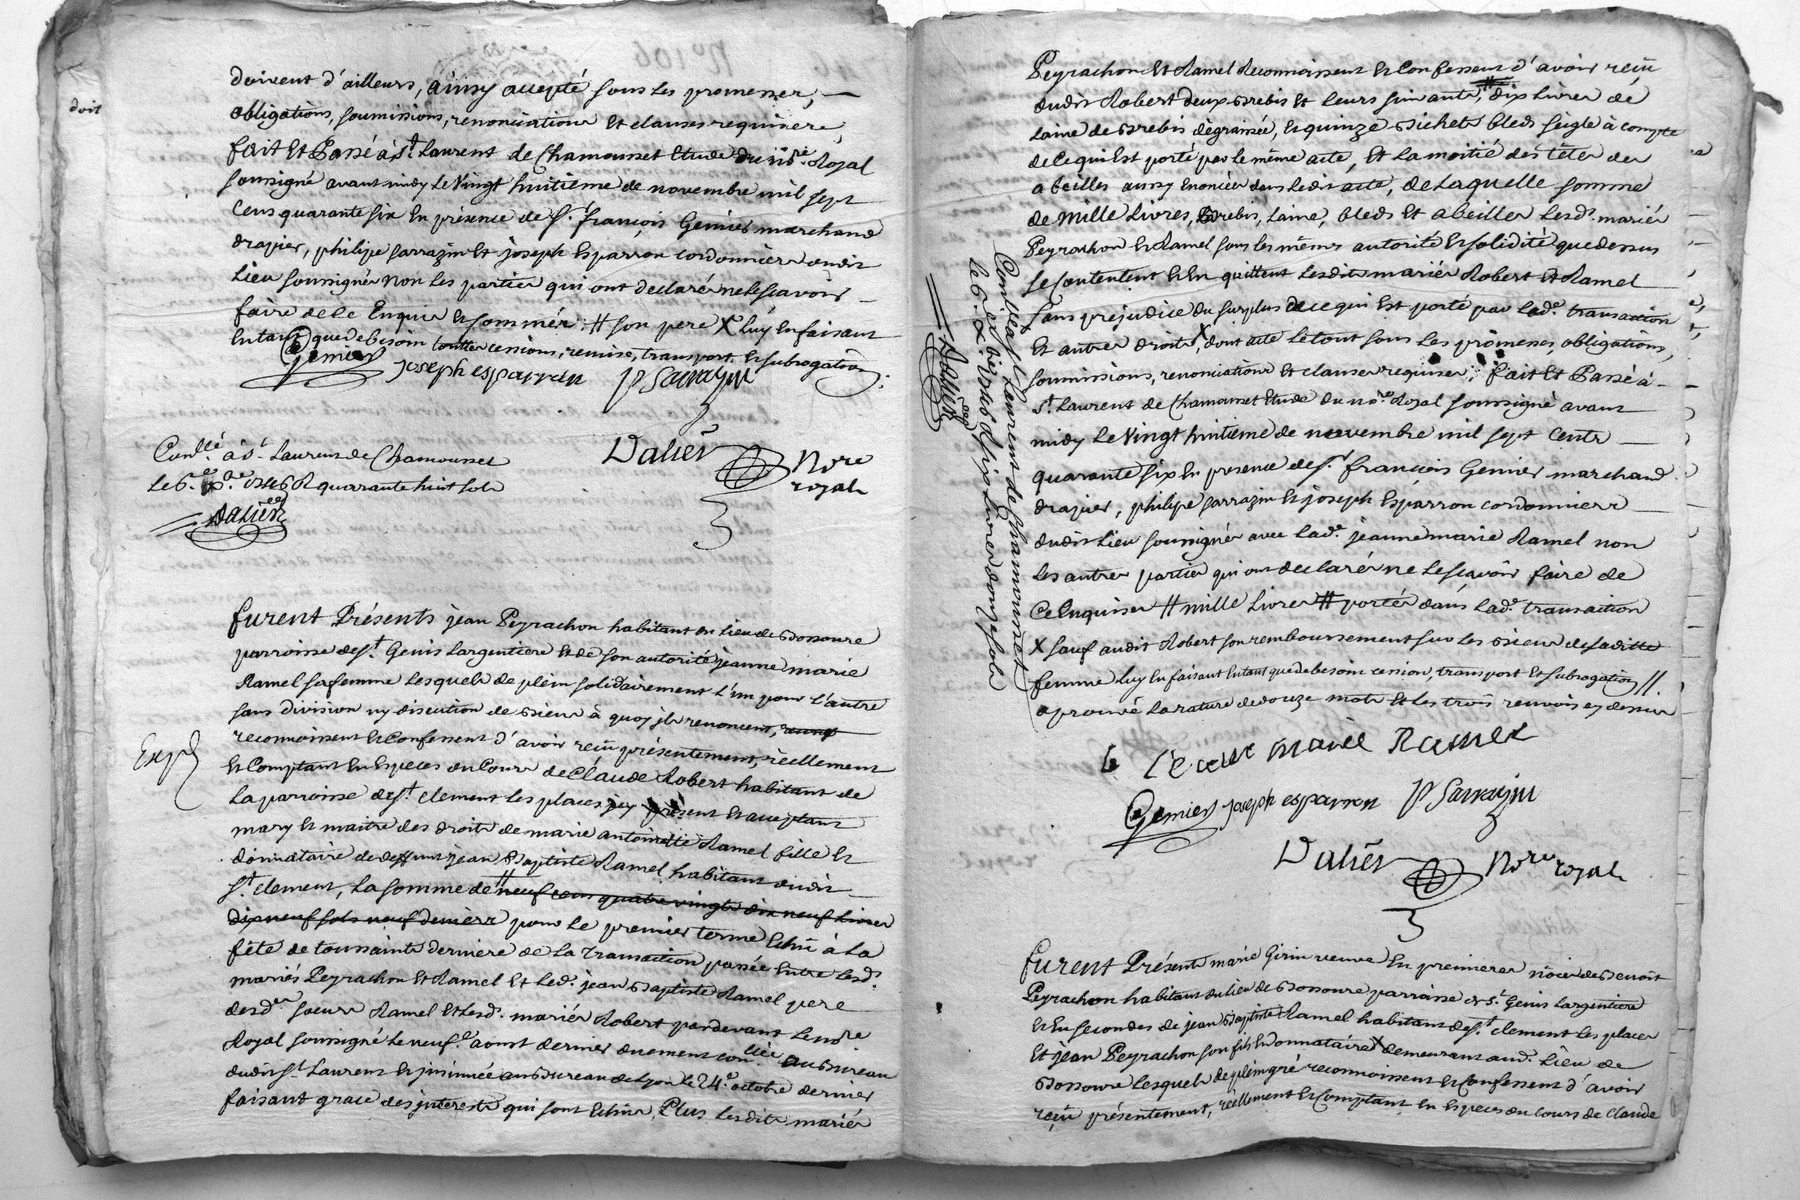 doivent d'ailleurs, ainsy accepté sous les promesses,
doit
obligations, soumissions, renonciations et clauses requises,
fait et Passé à St. Laurent de Chamousset Etude du nore. Royal
soussigné avant midy le Vingt huitième de novembre mil sept
cens quarante six En présence de Sr. françois Genier marchand
drapier, philipe sarrazin et joseph Esparron cordonniers dudit
Lieu soussignés non les parties qui ont declaré ne le scavoir
faire de ce Enquis et sommés : # son pere X luy En faisant
En tant que de besoin toutte cessions, remise, transport, et subrogation
Genier joseph esparron P Sarrazin
Dalier Nore royal
Conllé à St. Laurent de Chamousset
le 6e. xbre. 1746 R quarante huit sols
Dalier
furent Présents jean Peyrachon habitant du Lieu de Bossoure
parroisse de St. Genis Largentiere et de son autorité jeanne marie
Ramel sa femme Lesquels de plein solidairement L'un pour L'autre
sans division ny discution de Biens à quoy jls renoncent,
reconnoissent et Confessent d'avoir reçu présentement, réellement
Expé
Et Comptant En Especes du Cours de Claude Robert habitant de
la parroisse de St. Clement les places jcy présent et acceptant
mary et maitre des droits de marie antoinette Ramel fille et
donnataire de deffunt jean Baptiste Ramel habitant dudit
St. Clement, La somme de # neuf cens quatre vingts dix neuf Livres
dix neuf sols neuf deniers pour le premier terme Echu à La
fête de toussaints derniere de la Transaction passée Entre Lesds.
mariés Peyrachon et Ramel et Led. jean Baptiste Ramel pere
desdes. soeurs Ramel et Lesds. mariés Robert pardevant Le nore
Royal soussigné le neuf e. aoust dernier duement conllée au Bureau
dudit St. Laurent et jnsinuée au Bureau de Lyon le 24e. octobre dernier
faisant grace des jnterests qui sont Echus, Plus Lesdits mariés
Peyrachon et Ramel Reconnoissent et Confessent d'avoir reçu
dudit Robert deux Brebis et leurs suivants, # dix Livres de
laine de Brebis dégraissée, et quinze Bichets bleds seigle à compte
de ce qui Est porté par le même acte, Et La moitié des têtes des
abeilles aussy Enoncées dans ledit acte, de Laquelle somme
de Mille Livres, Brebis, Laine, bleds et abeilles Lesds. mariés
Peyrachon et Ramel sous les mêmes autorité et solidité que dessus
se Contentent et En quittent Lesdits mariés Robert et Ramel
sans préjudice du surplus de ce qui Est porté par Lade. transaction
Et autres droits X, dont acte Le tout sous les promesses, obligations,
soumissions, renonciations et clauses requises : fait et Passé à
St. Laurent de Chamousset Etude du nore. Royal soussigné avant
midy Le Vingt huitième de novembre mil sept cents
quarante six En presence de Sr. françois Genier marchand
drapier, philipe sarrazin et joseph Esparron cordonniers
dudit Lieu soussignés avec Lade. jeanne marie Ramel non
les autres parties qui ont declaré ne Le scavoir faire de
Ce Enquises # mille Livres # portés dans Lade. transaction
X sauf audit Robert son remboursement sur les Biens de saditte
femme Luy En faisant En tant que de besoin cession, transport et subrogation //.
aprouvé La rature de douze mots et Les trois renvois cy dessus
Conllé à St. Laurent de Chamousset
le 6. xbre. 1746 R six Livres douze sols
Dalier
marie Ramel
Genier joseph esparron P Sarrazin
Dalier Nore royal
furent Présents marie Girin veuve En premieres nôces de Benoît
Peyrachon habitant du Lieu de Bossoure parroisse de St. Genis Largentiere
et En secondes de jean Baptiste Ramel habitant de St. Clement les places
Et jean Peyrachon son fils et donnataire X demeurant aud. Lieu de
Bossoure Lesquels de plein gré reconnoissent et Confessent d'avoir
reçu présentement, réellement et Comptant En Especes du Cours de Claude